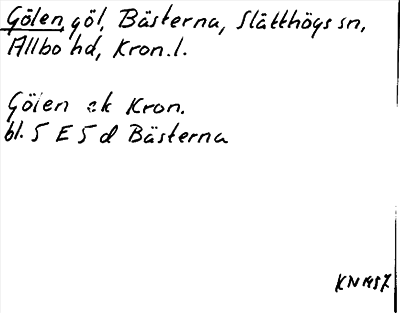 Gölen, göl, Bästerna, Slätthögs sn,
Allbo hd, Kron.l.
Gölen ek Kron.
bl. 5 E 5 d Bästerna
KN 1957